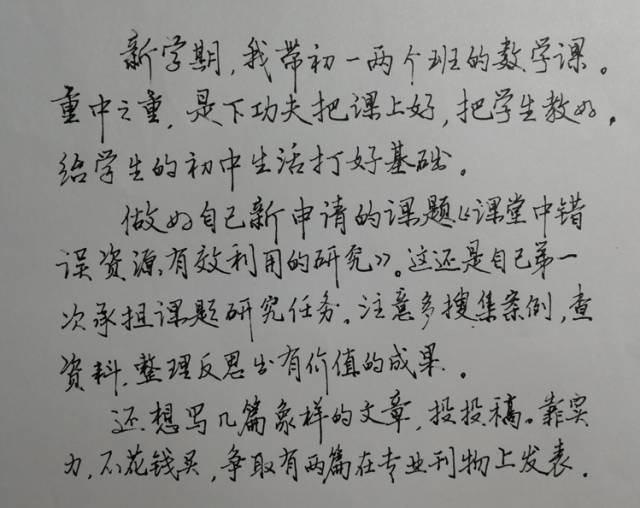 新学期,我带初一两个班的数学课。
重中之重,是下功夫把课上好,把学生教好,
给学生的初中生活打好基础。
做好自己新申请的课题《课堂中错
误资源有效利用的研究》。这还是自己第一
次承担课题研究任务。注意多搜集案例,查
资料.整理反思出有价值的成果.
还想写几篇象样的文章,投投稿。靠实
力,不花钱买,争取有两篇在专业刊物上发表.